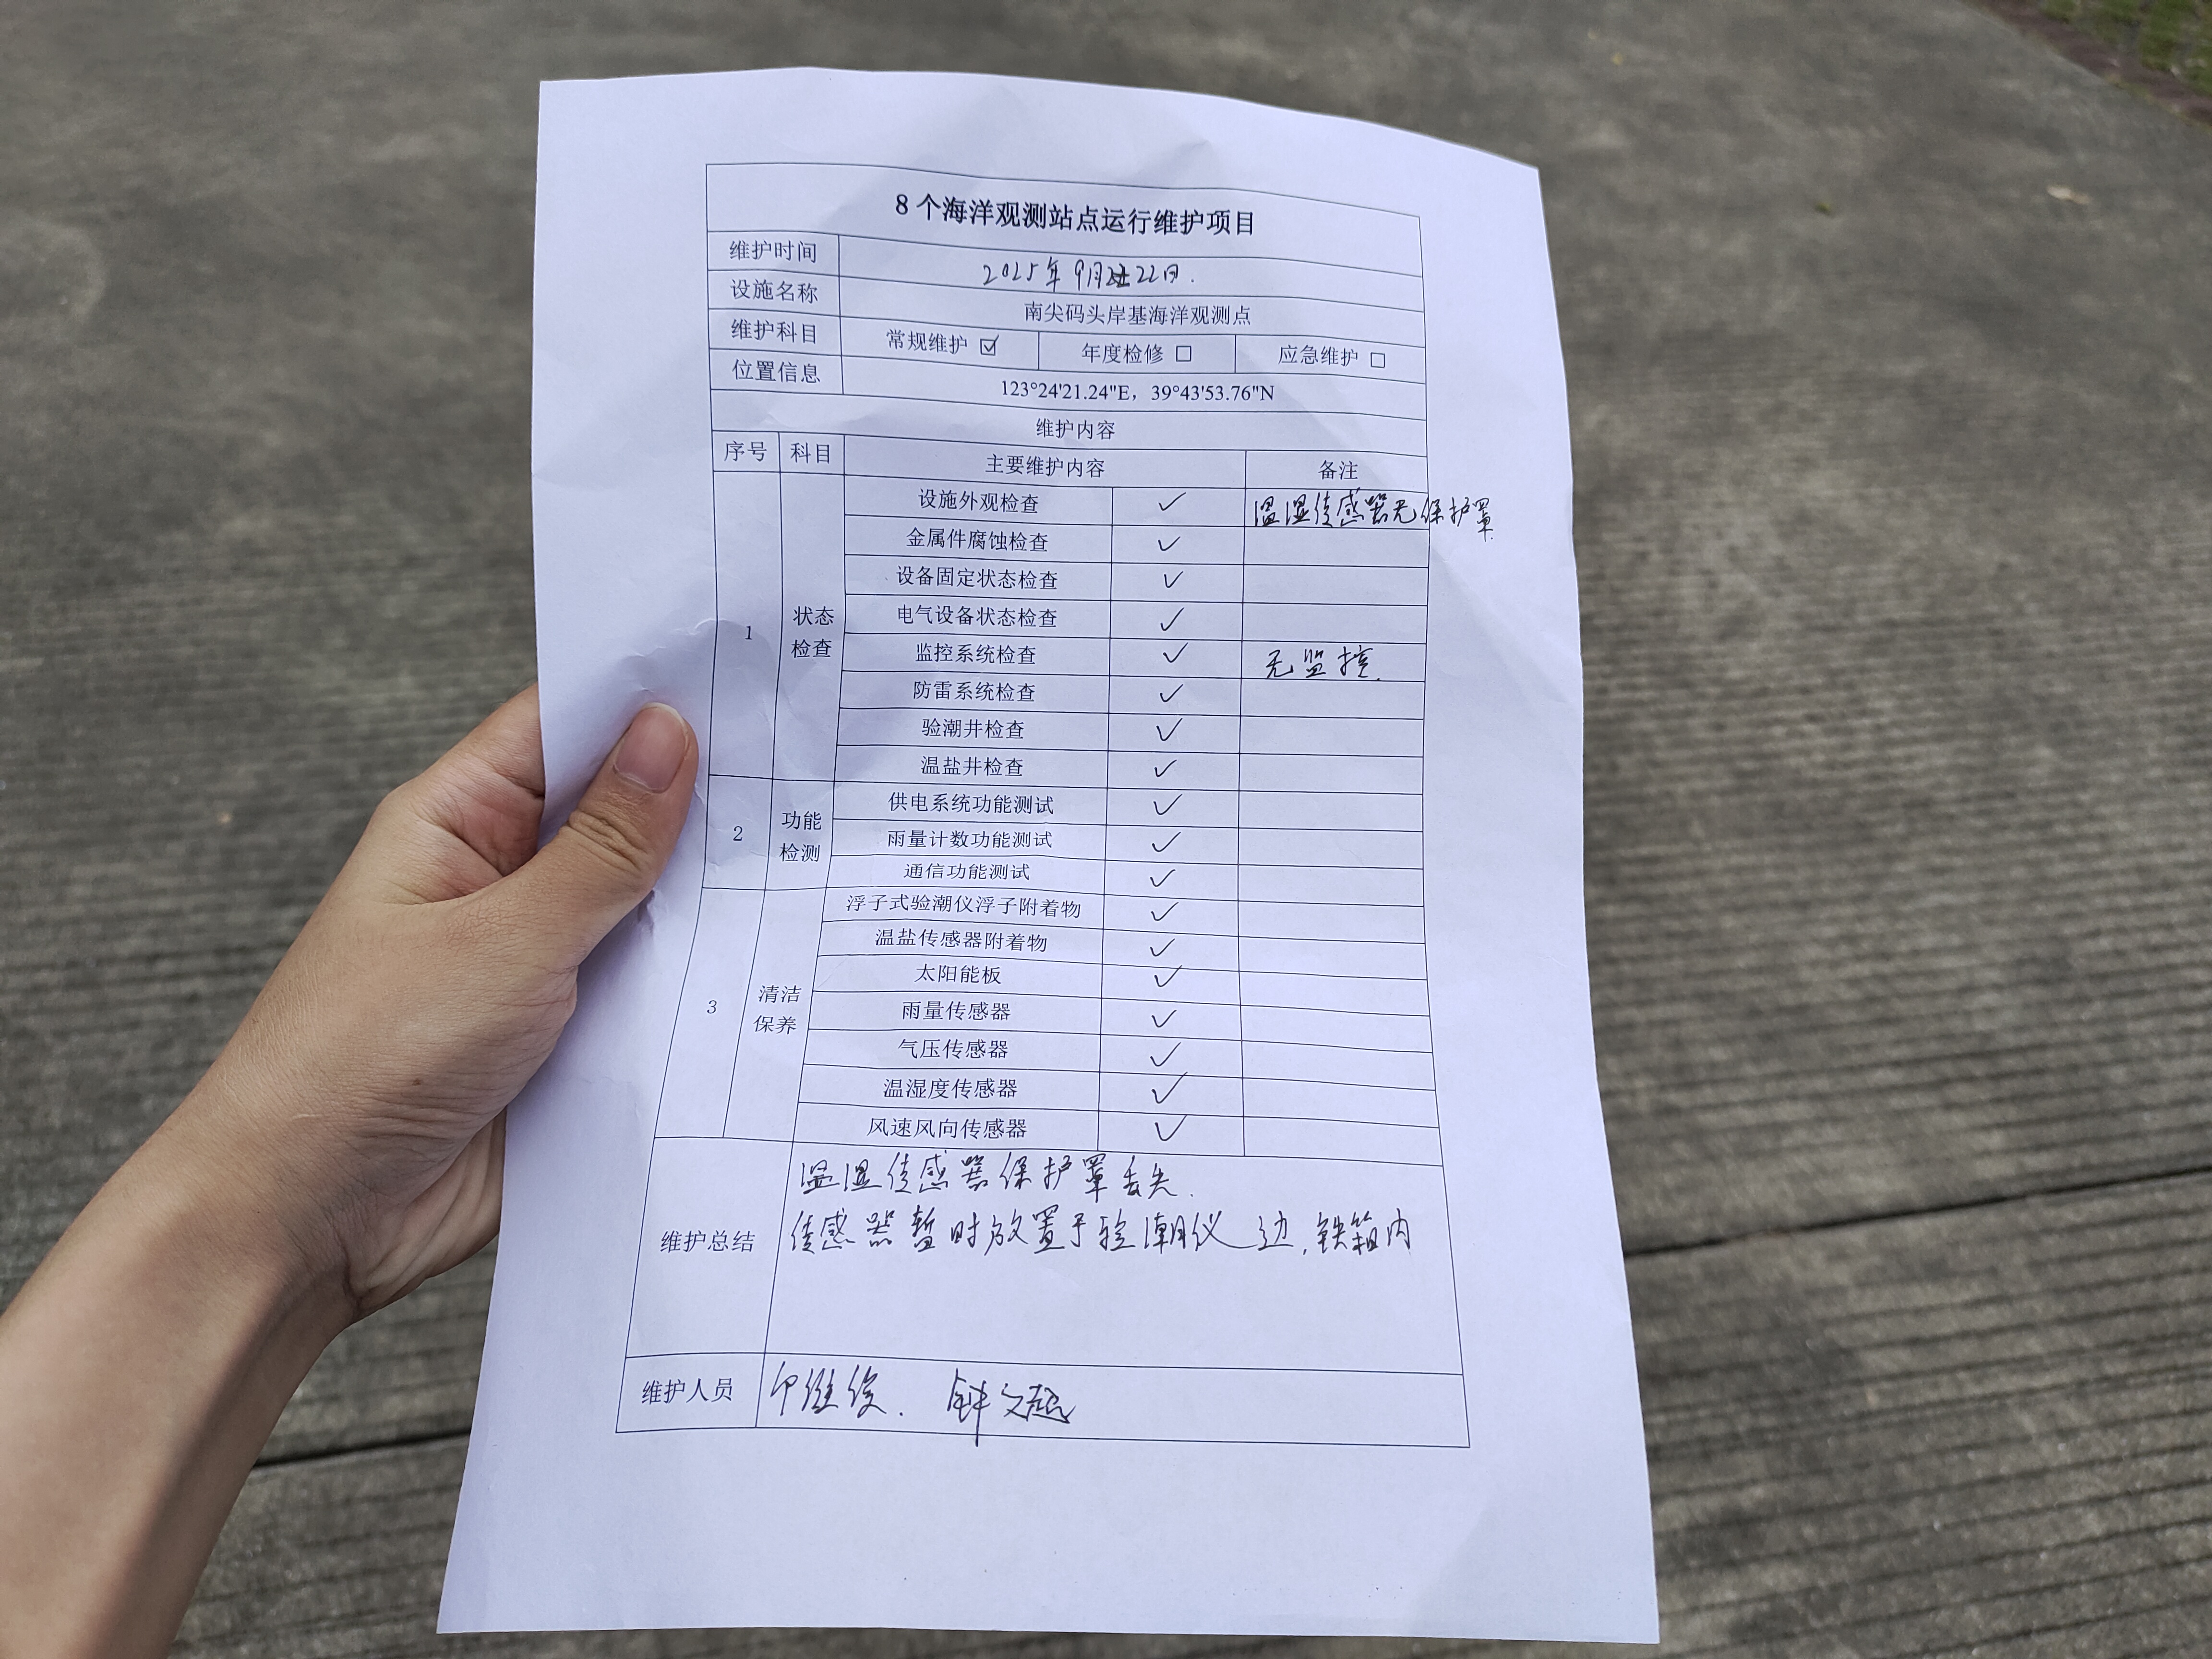 8 个海洋观测站点运行维护项目
维护时间 2025年9月22日.
设施名称 南尖码头岸基海洋观测点
维护科目 常规维护 ☑ 年度检修 □ 应急维护 □
位置信息 123°24'21.24"E，39°43'53.76"N
维护内容
序号 科目 主要维护内容 备注
1 状态检查
设施外观检查 ✓ 温湿传感器无保护罩.
金属件腐蚀检查 ✓
设备固定状态检查 ✓
电气设备状态检查 ✓
监控系统检查 ✓ 无监控.
防雷系统检查 ✓
验潮井检查 ✓
温盐井检查 ✓
2 功能检测
供电系统功能测试 ✓
雨量计数功能测试 ✓
通信功能测试 ✓
3 清洁保养
浮子式验潮仪浮子附着物 ✓
温盐传感器附着物 ✓
太阳能板 ✓
雨量传感器 ✓
气压传感器 ✓
温湿度传感器 ✓
风速风向传感器 ✓
维护总结
温湿传感器保护罩丢失.
传感器暂时放置于验潮仪边,铁箱内
维护人员